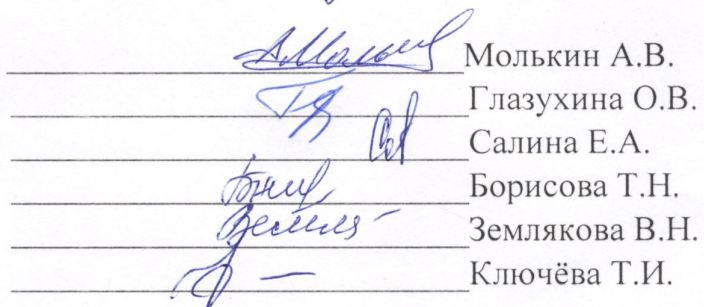 Молькин А.В.
Глазухина О.В.
Салина Е.А.
Борисова Т.Н.
Землякова В.Н.
Ключёва Т.И.